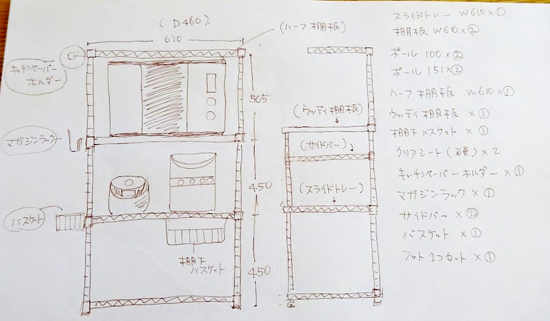 (D460)
610
(ハーフ棚板)
キッチンペーパー
ホルダー
505
マガジンラック
(ウッディ棚板)
(サイドバー)
450
(スライドトレー)
バスケット
棚下
バスケット
450
スライドトレー W610×①
棚板 W610×②
ポール 100×②
ポール 151×②
ハーフ棚板 W610×①
ウッディ棚板 ×①
棚下バスケット ×①
クリアシート ×2
キッチンペーパーホルダー ×①
マガジンラック ×①
サイドバー ×
バスケット ×①
カット ×①